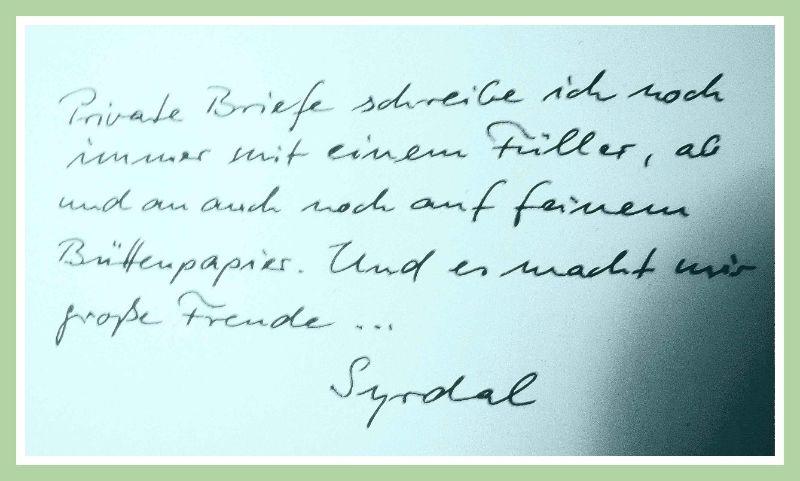 Private Briefe schreibe ich noch
immer mit einem Füller, ab
und an auch noch auf feinem
Büttenpapier. Und es macht mir
große Freude ...
Syrdal